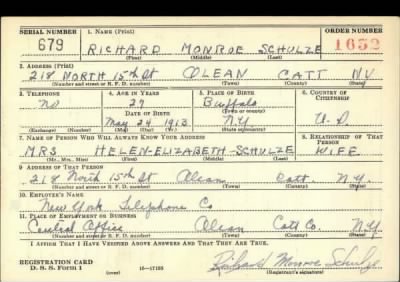 SERIAL NUMBER 1. NAME (Print) ORDER NUMBER
679 RICHARD MONROE SCHULZE 1652
(First) (Middle) (Last)
2. ADDRESS (Print)
218 NORTH 15th St OLEAN CATT N.Y.
(Number and street or R. F. D. number) (Town) (County) (State)
3. TELEPHONE 4. AGE IN YEARS 5. PLACE OF BIRTH 6. COUNTRY OF CITIZENSHIP
no 27 Buffalo U.S.
DATE OF BIRTH (Town or county)
May 24 1913 N.Y.
(Exchange) (Number) (Mo.) (Day) (Yr.) (State or country)
7. NAME OF PERSON WHO WILL ALWAYS KNOW YOUR ADDRESS 8. RELATIONSHIP OF THAT PERSON
MRS HELEN-ELIZABETH-SCHULZE WIFE
(Mr., Mrs., Miss) (First) (Middle) (Last)
9. ADDRESS OF THAT PERSON
218 North 15th St Olean Catt. N.Y.
(Number and street or R. F. D. number) (Town) (County) (State)
10. EMPLOYER'S NAME
New York Telephone Co
11. PLACE OF EMPLOYMENT OR BUSINESS
Central Office Olean Catt Co. N.Y.
(Number and street or R. F. D. number) (Town) (County) (State)
I AFFIRM THAT I HAVE VERIFIED ABOVE ANSWERS AND THAT THEY ARE TRUE.
REGISTRATION CARD
D. S. S. Form 1 16—17105 Richard Monroe Schulze
(Registrant's signature)